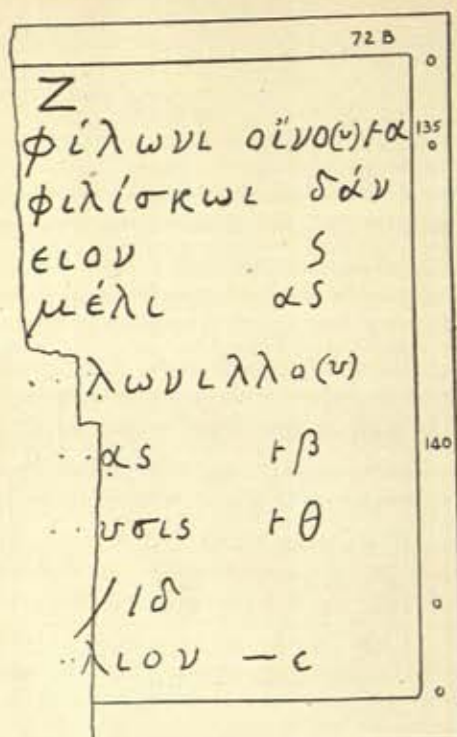 72 B
Ζ
φίλωνι οἴνο(υ) ⊢α 135
φιλίσκωι δάν
ειον ς
μέλι ας
..λωνιλλο(υ)
..ας ⊢β 140
..υσις ⊢θ
/ ιδ
..λιον — c